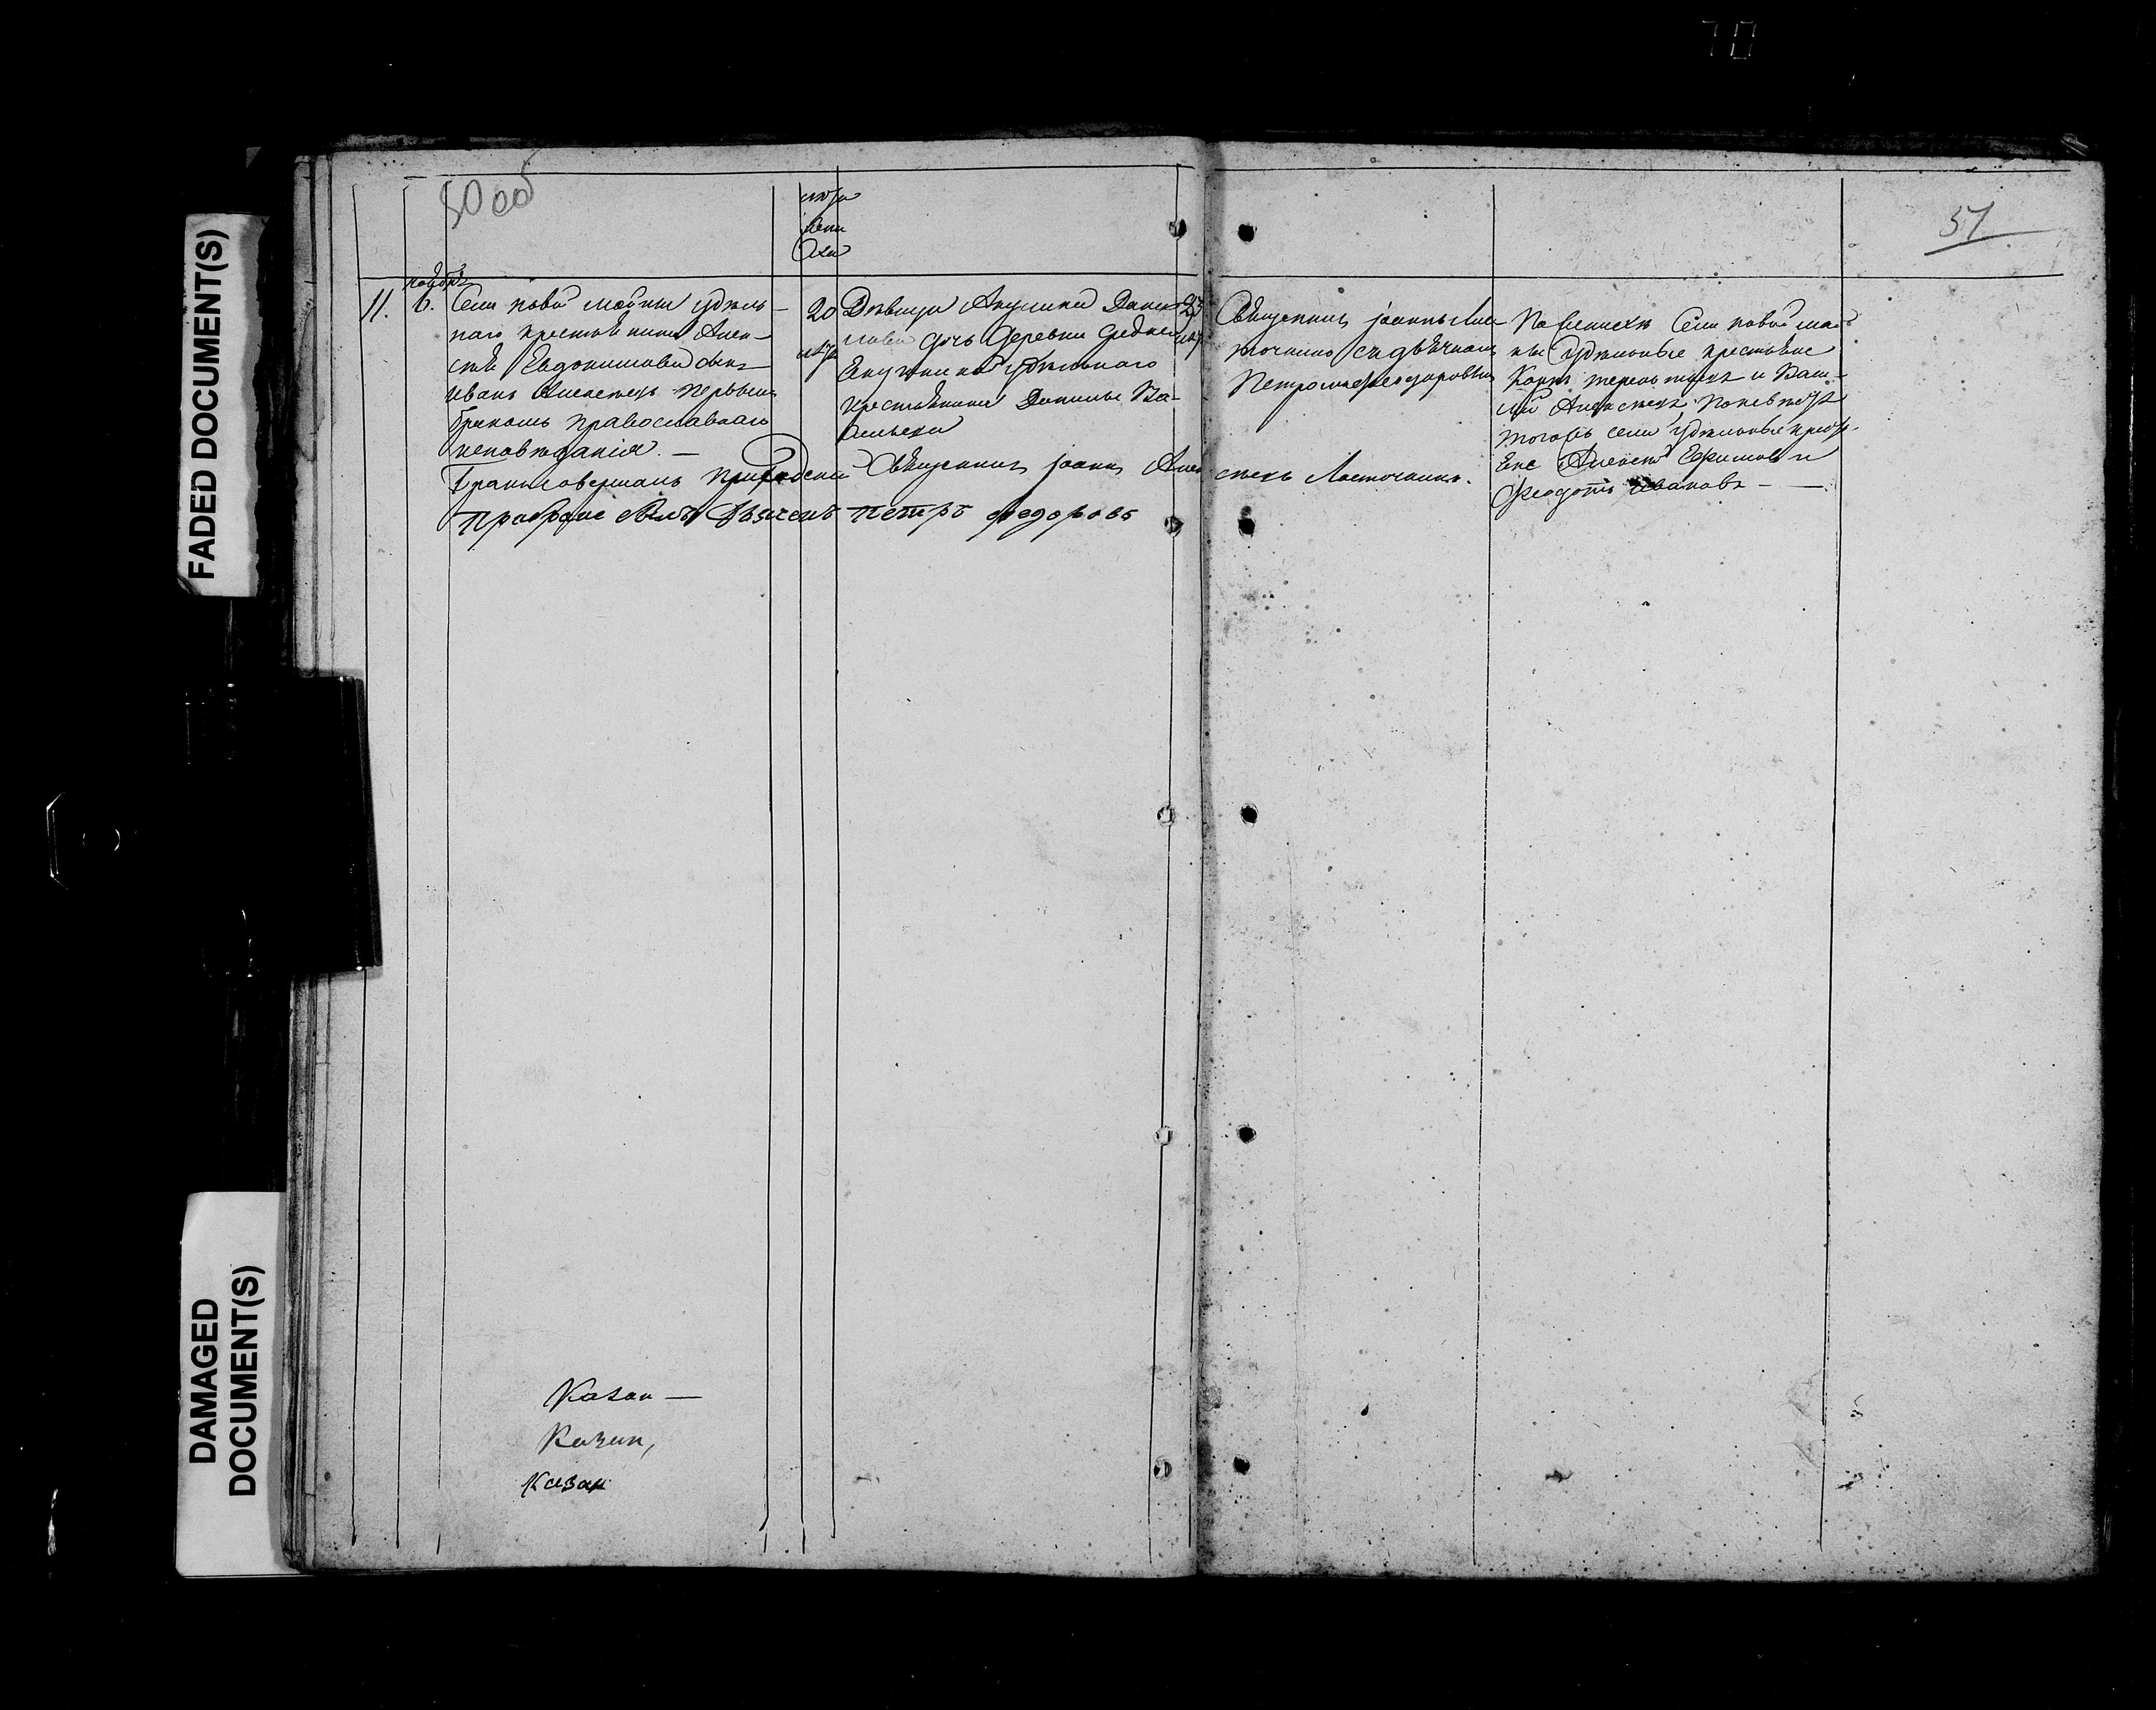 70
50 об
51
лѣта
жени
ха
ноябрь
11.
6.
Села новой мойны удѣль-
наго крестьянина Алек-
сѣя Евдокимова сынъ
Иванъ Алексѣевъ первымъ
бракомъ православнаго
исповѣданія. —
20
лѣтъ
Дѣвица Акулина Данил
лова дочь деревни Средней
удѣльнаго
крестьянина Данилы Ва-
сильева
23
лѣтъ
Священникъ Іоаннъ Лас-
точкинъ съ дьячкомъ
Петромъ Феодоровымъ
По женихѣ Села новой мой-
ны удѣльные крестьяне
Карпъ Терентьевъ и Васи-
лій Алексѣевъ, по невѣстѣ
того жъ села удѣльные кресть-
яне Алексѣй Ефимовъ и
Феодотъ Ивановъ —
Бракъ совершалъ приходскій Священникъ Іоаннъ Алек
сѣевъ Ласточкинъ.
При бракѣ былъ Дьячекъ Петръ Федоровъ
Казан —
Казан,
Казан
FADED DOCUMENT(S)
DAMAGED
DOCUMENT(S)